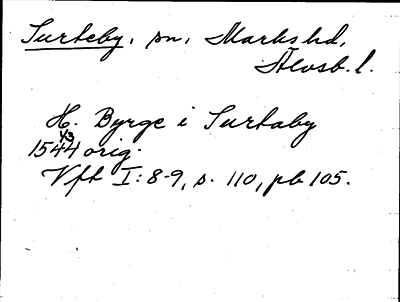 Surteby, sn, Marks hd,
Älvsb. l.
H. Byrge i Surtaby
1544 1/3 orig.
Vfh I: 8-9, s. 110, pb 105.